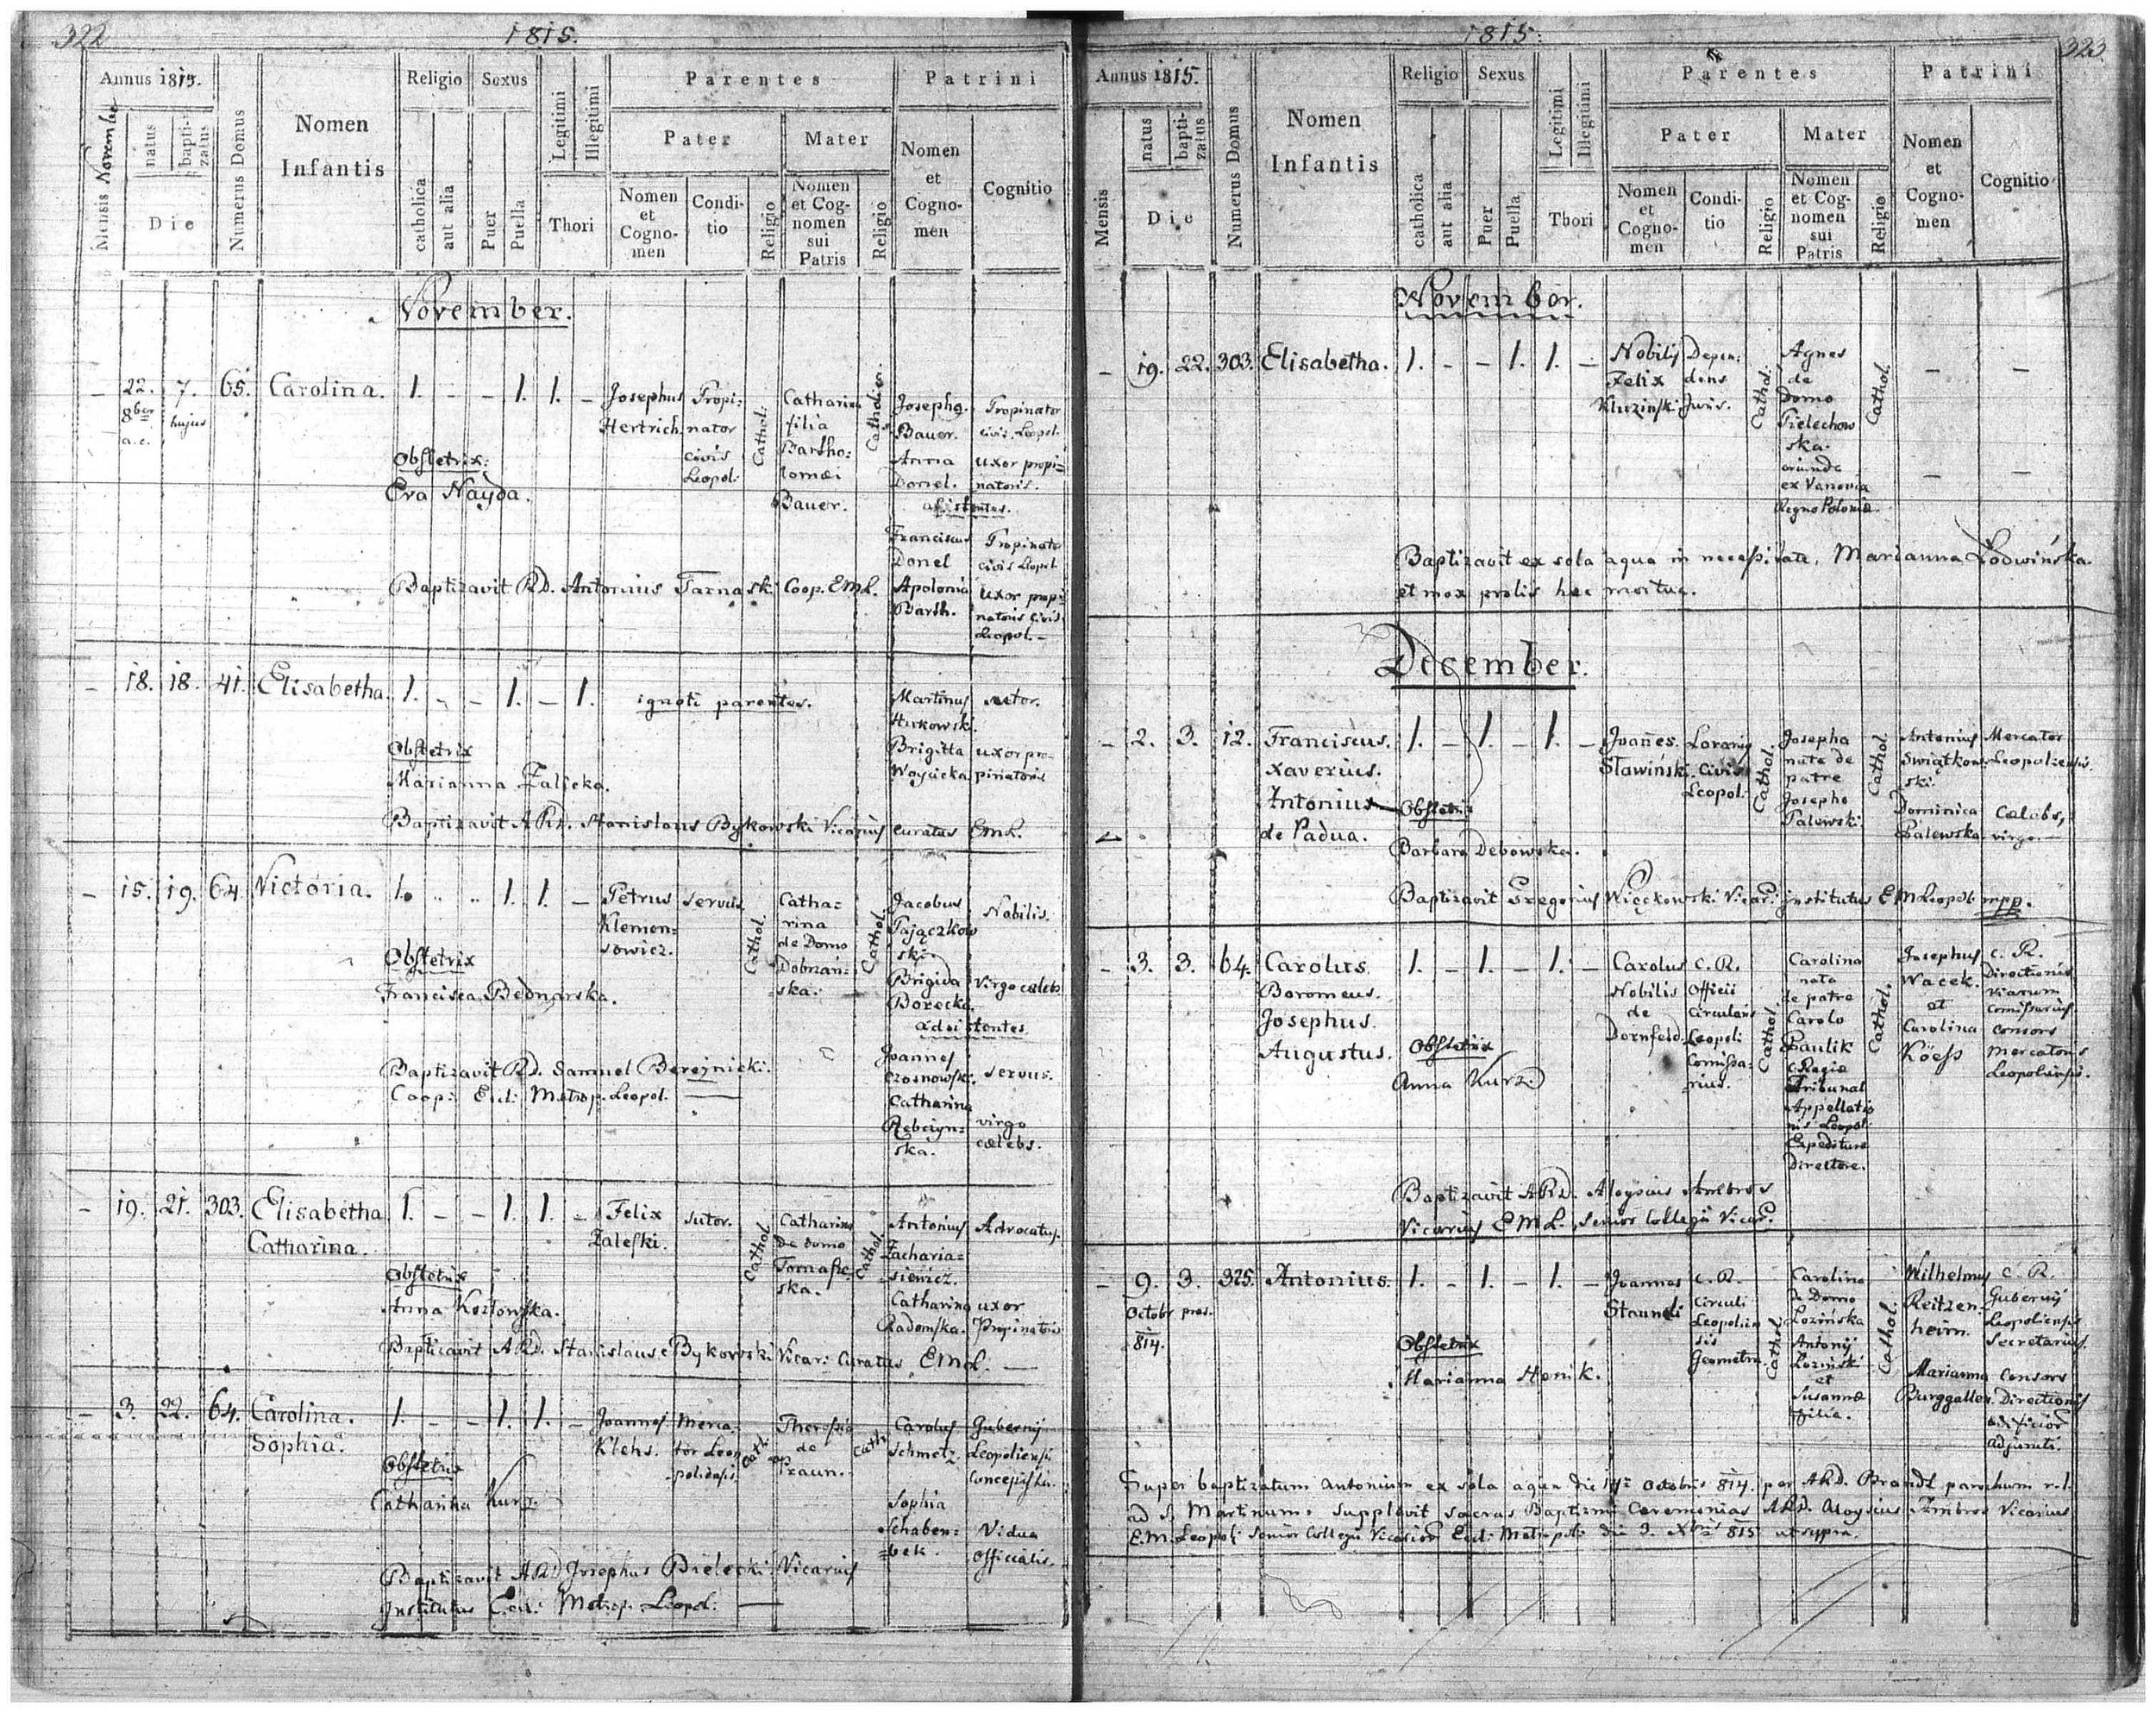 322
1815.
Annus 1815.
Mensis November
natus
baptizatus
Die
Numerus Domus
Nomen
Infantis
Religio
catholica
aut alia
Sexus
Puer
Puella
Legitimi
Illegitimi
Thori
Parentes
Pater
Nomen
et
Cogno-
men
Condi-
tio
Religio
Mater
Nomen
et Cog-
nomen
sui
Patris
Religio
Patrini
Nomen
et
Cogno-
men
Cognitio
November.
- 22. 7. 65. Carolina. 1. - - 1. 1. -
8ber hujus
a.c.
Josephus
Hertrich.
Propi:
nator
civis
Leopol:
Cathol:
Catharina
filia
Bartho:
lomæi
Bauer.
Josephq.
Bauer.
Propinator
civis Leopol.
Anna
Donel.
uxor propi=
natoris.
assistentes.
Franciscus
Donel
Propinator
civis Leopol.
Apolonia
Barth.
uxor propi=
natoris civis
Leopol. -
Obstetrix:
Eva Nayda.
Baptizavit RD. Antonius Tarnaski Coop. EML.
- 18. 18. 41. Elisabetha. 1. - - 1. - 1.
ignoti parentes.
Martinus
Hirkowski.
sutor.
Brigitta
Woycicka
uxor pro-
pinatoris
Obstetrix
Marianna Zalicka.
Baptizavit ARD. Stanislaus Bykowski Vicarius curatus EML.
- 15. 19. 64. Victoria. 1. - - 1. 1. -
Petrus
Klemen=
sowicz.
servus
Cathol.
Catha=
rina
de Domo
Dobrzań=
ska.
Cathol.
Jacobus
Pajączkow
ski.
Nobilis.
Brigida
Borecka
virgo cæleb.
adsistentes
Joannes
Czosnowski.
servus.
Catharina
Rebczyn=
ska.
virgo
cælebs.
Obstetrix
Francisca Bednarska.
Baptizavit RD. Samuel Bereznicki.
Coop: Eccl: Metrop. Leopol.
- 19. 21. 303. Elisabetha 1. - - 1. 1. -
Catharina.
Felix
Zaleski.
sutor.
Cathol.
Catharina
de domo
ska.
Cathol.
Antonius
Zacharia=
siewicz.
Advocatus.
Catharina
Radomska.
uxor
Propinatoris
Obstetrix
Anna Kozłowska.
Baptizavit ARD. Stanislaus Bykowski Vicar: Curatus EML.
- 3. 22. 64. Carolina. 1. - - 1. 1. -
Sophia.
Joannes
Klehs.
Merca
tor Leo
poliensis
Cath.
Theresia
de
Praun.
Cath.
Carolus
Schmetz.
Gubernij
Leopoliensis
Concepista.
Sophia
Schaben=
bek.
Vidua
Officialis.
Obstetrix
Catharina Kurz.
Baptizavit ARD Josephus Bielecki Vicarius
Institutus Eccl: Metrop. Leopol:
1815.
323
Annus 1815.
Mensis
natus
baptizatus
Die
Numerus Domus
Nomen
Infantis
Religio
catholica
aut alia
Sexus
Puer
Puella
Legitimi
Illegitimi
Thori
Parentes
Pater
Nomen
et
Cogno-
men
Condi-
tio
Religio
Mater
Nomen
et Cog-
nomen
sui
Patris
Religio
Patrini
Nomen
et
Cogno-
men
Cognitio
November.
- 19. 22. 303. Elisabetha. 1. - - 1. 1. -
Nobilis
Felix
Kluzinski
Depen:
dens
Juris.
Cathol:
Agnes
de
Domo
Pielechow
ska.
oriunda
ex Vanovia
Regno Poloniæ.
Cathol.
Baptizavit ex sola aqua in necessitate, Marianna Łodwińska.
et mox prolis hæc mortua.
December.
- 2. 3. 12. Franciscus. 1. - 1. - 1. -
Xaverius.
Antonius
de Padua.
Joannes.
Sławiński.
civis
Leopol.
Cathol.
Josepha
nata de
patre
Josepho
Palewski.
Cathol.
Antonius
Swiątkow
ski.
Mercator
Leopoliensis.
Dominica
Palewska
Cælebs,
virgo.
Obstetrix
Barbara Debowska.
Baptizavit Gregorius Więckowski Vicar: institutus EMLeopol: mpp.
- 3. 3. 64. Carolus. 1. - 1. - 1. -
Boromeus.
Josephus.
Augustus.
Carolus
Nobilis
de
Dornfeld
C. R.
Officii
Circularis
Leopoli
Comissa=
rius.
Cathol.
Carolina
nata
de patre
Carolo
Paulik
C. Regiæ
Tribunal
Appellatio
nis Leopol:
Expeditura
Directore.
Cathol.
Josephus
Wacek.
et
Carolina
Köess
C. R.
Directionis
viarum
Comissarius
consors
mercatoris
Leopoliensis.
Obstetrix
Anna Kurz.
Baptizavit ARD. Aloysius Ambros
Vicarius EML. Senior Collegii Vicar.
- 9. 3. 325. Antonius. 1. - 1. - 1. -
Octobr pres.
814.
Joannes
Staundi
C. R.
Circuli
Leopolien
sis
Geometra.
Cathol.
Carolina
de Domo
Lozińska
Antonij
Loziński
et
Susannæ
filia.
Cathol.
Wilhelmus
Reitzen-
heim.
C. R.
Gubernij
Leopoliensis
Secretarius.
Marianna
Burggaller.
Consors
Directionis
ædificior
adjuncti.
Obstetrix
Marianna Henik.
Super baptizatum Antonium ex sola aqua die Octobris 814. per ARD. Brandt parochum r.l.
ad S. Martinum: supplevit sacras Baptismi Ceremonias ARD. Aloysius Ambros Vicarius
E.M.Leopol: Senior Collegii Vicarior Eccl: Metropol: die 3. Xbris 815 ut supra.